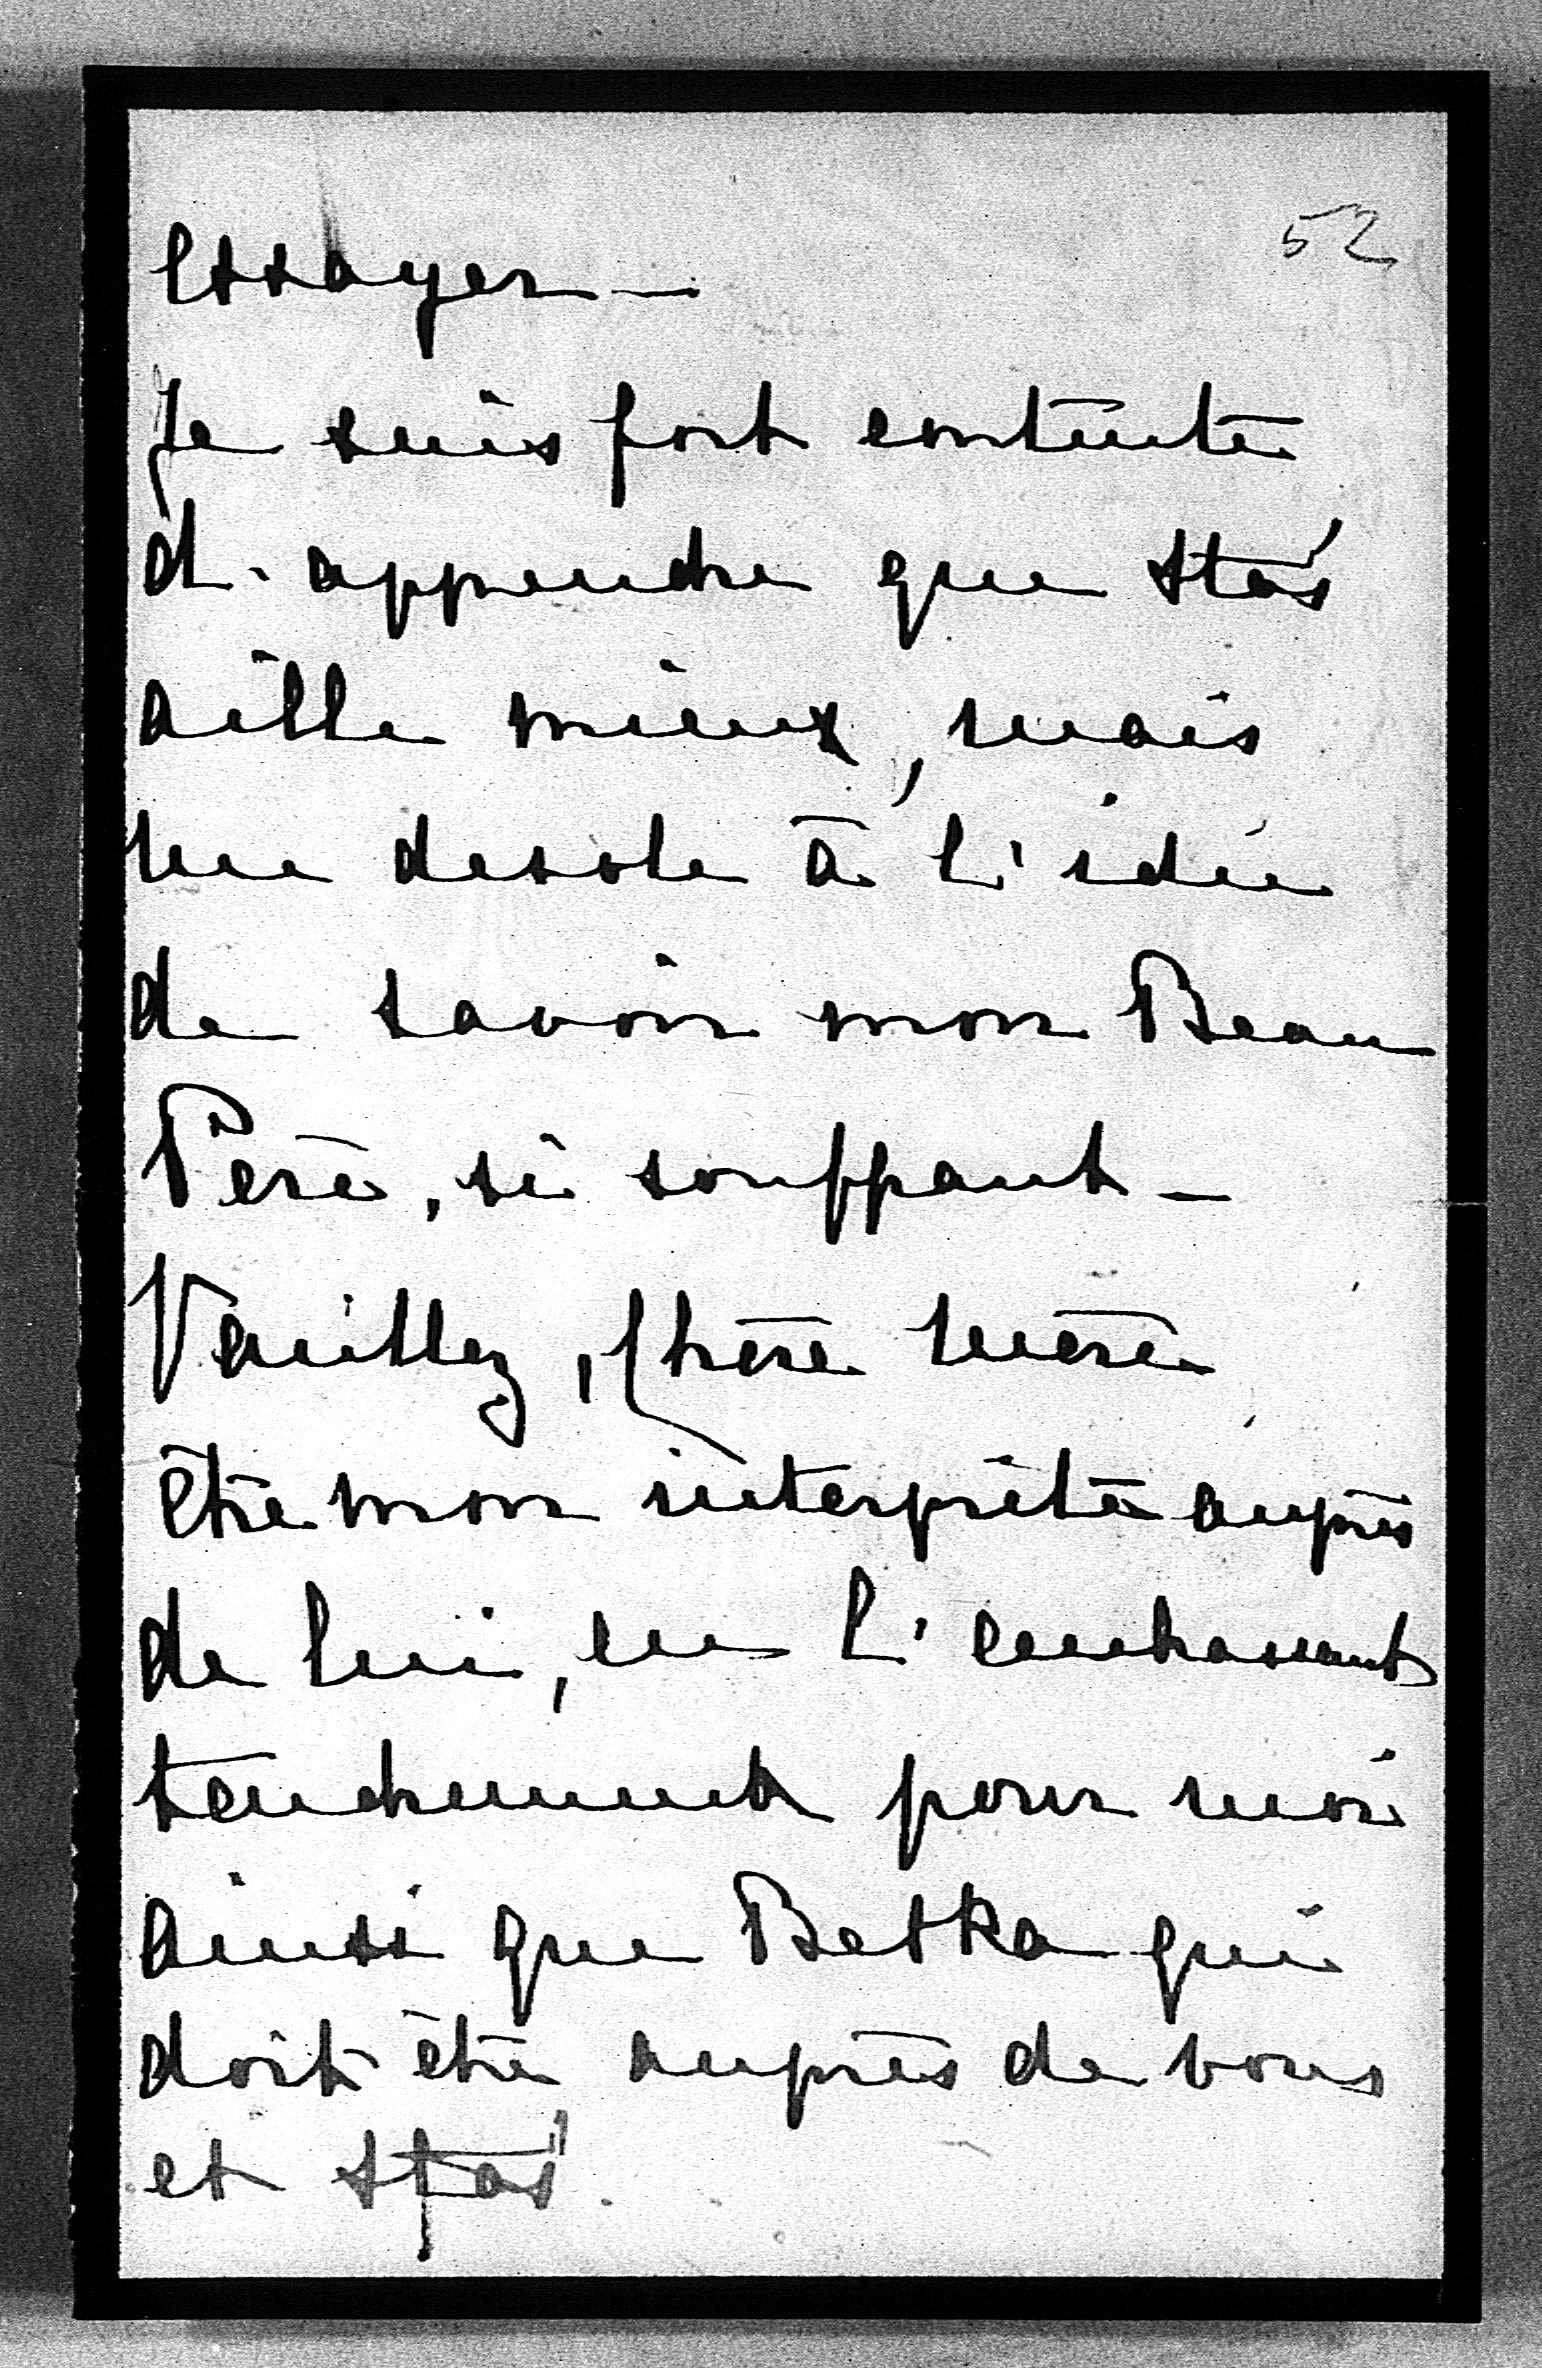 52
essayer —
Je suis fort contente
d'apprendre que Staś
aille mieux, mais
me desole à l'idée
de savoir mon Beau
Père, si souffrant —
Veuillez, Chère Mère
être mon interprête auprès
de lui, en l'embrassant
tendrement pour moi
ainsi que Betka qui
doit être auprès de vous
et Staś.